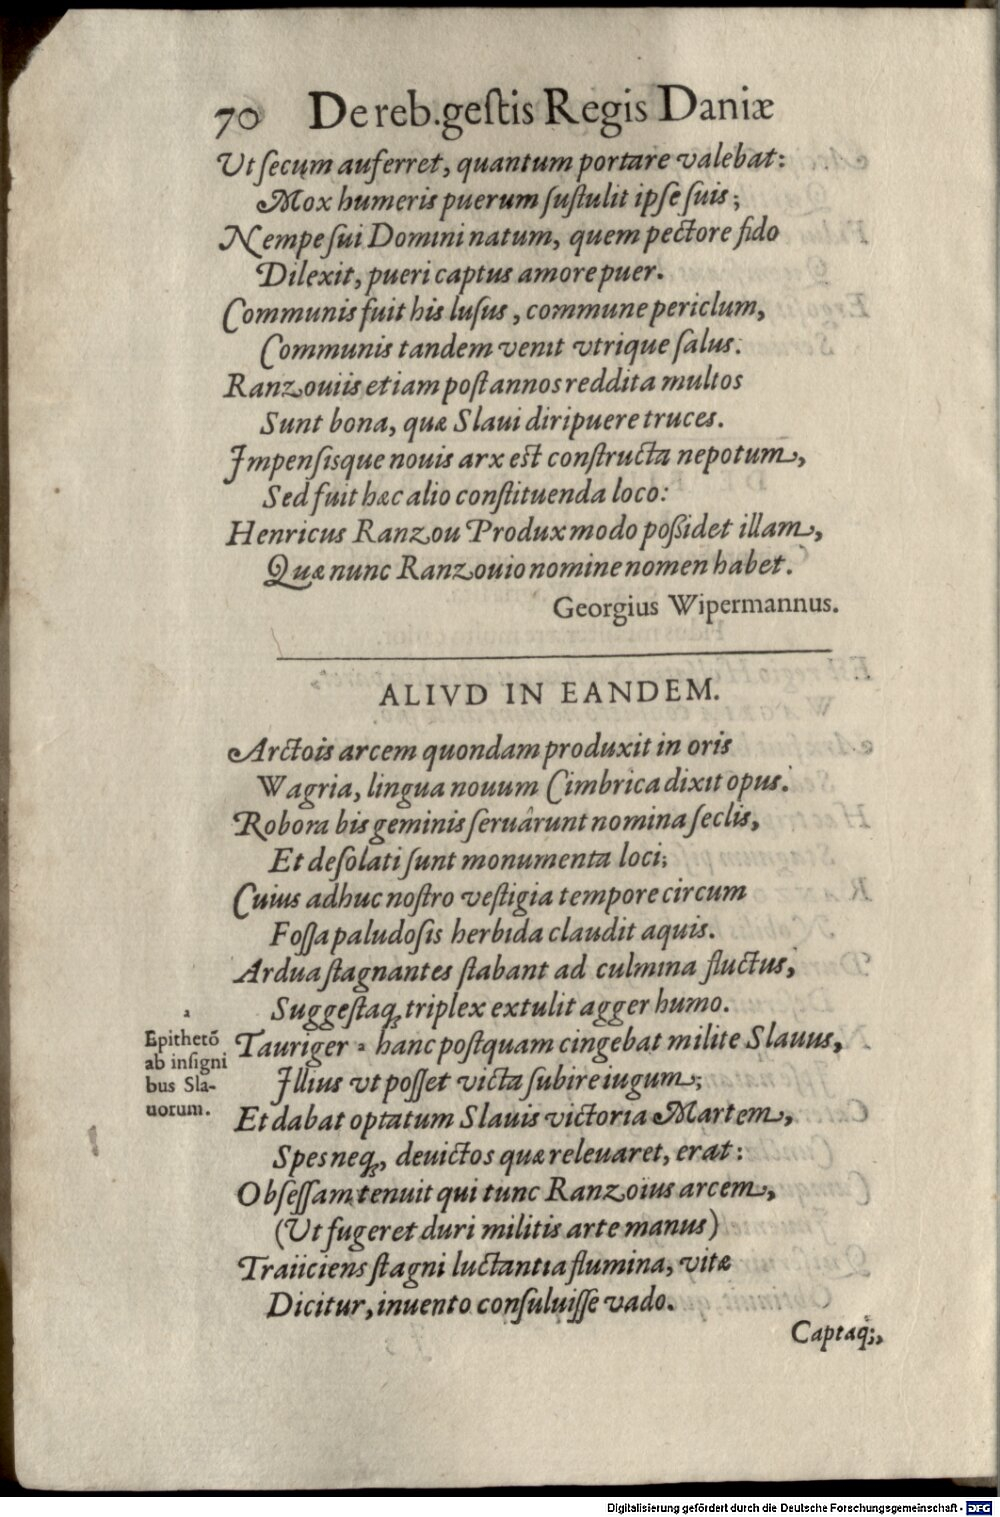 70 De reb. gestis Regis Daniæ
Vt secum auferret, quantum portare valebat:
Mox humeris puerum sustulit ipse suis;
Nempe sui Domini natum, quem pectore fido
Dilexit, pueri captus amore puer.
Communis fuit his lusus, commune periclum,
Communis tandem venit vtrique salus.
Ranzouiis etiam post annos reddita multos
Sunt bona, quæ Slaui diripuere truces.
Impensisque nouis arx est constructa nepotum,
Sed fuit hæc alio constituenda loco:
Henricus Ranzou Produx modo poßidet illam,
Quæ nunc Ranzouio nomine nomen habet.
Georgius Wipermannus.
ALIVD IN EANDEM.
Arctois arcem quondam produxit in oris
Wagria, lingua nouum Cimbrica dixit opus.
Robora bis geminis seruârunt nomina seclis,
Et desolati sunt monumenta loci;
Cuius adhuc nostro vestigia tempore circum
Fossa paludosis herbida claudit aquis.
Ardua stagnantes stabant ad culmina fluctus,
Suggestaq; triplex extulit agger humo.
Tauriger a hanc postquam cingebat milite Slauus,
Illius vt posset victa subire iugum;
Et dabat optatum Slauis victoria Martem,
Spes neq;, deuictos quæ releuaret, erat:
Obsessam tenuit qui tunc Ranzoius arcem,
(Vt fugeret duri militis arte manus)
Traiiciens stagni luctantia flumina, vitæ
Dicitur, inuento consuluisse vado.
Captaq;,
a
Epithetõ
ab insigni
bus Sla-
uorum.
Digitalisierung gefördert durch die Deutsche Forschungsgemeinschaft - DFG